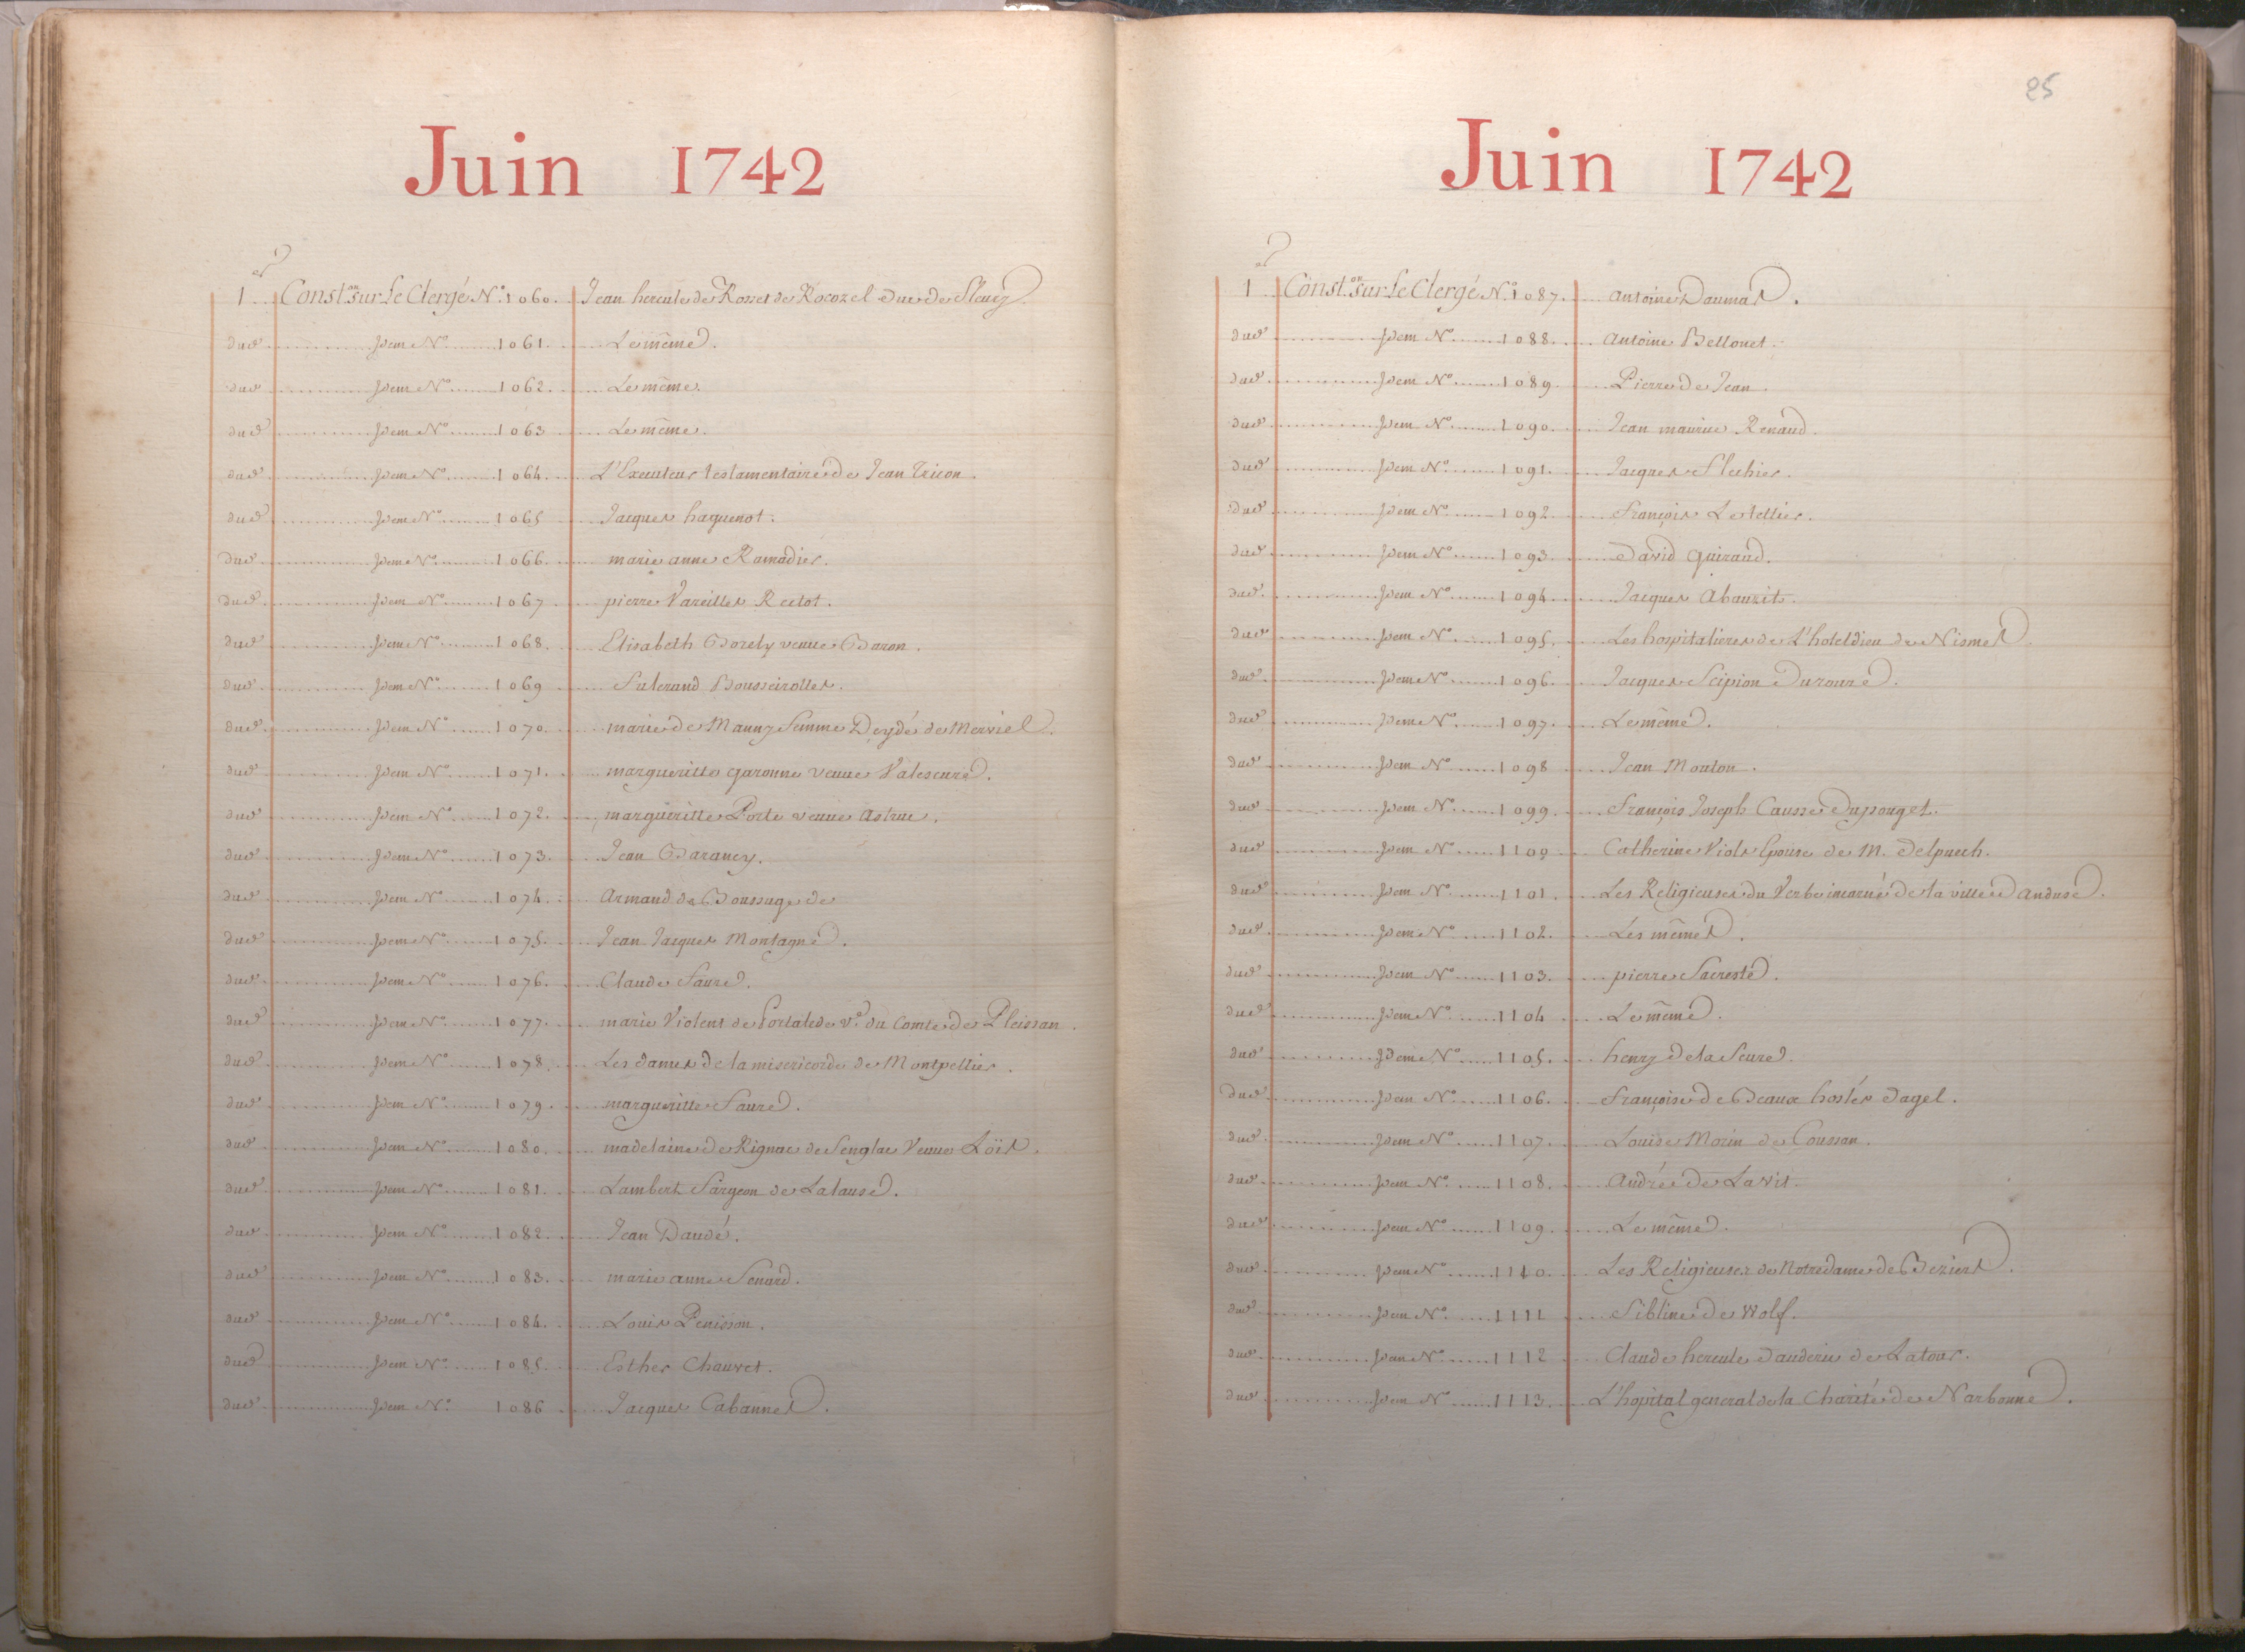 Juin 1742
1er Const.on sur Le Clergé N.o 1060. Jean hercule de Rosset de Rocozel Duc de Fleury.
dud. Idem No 1061. Le même.
dud. Idem No 1062. Le même.
dud. Idem No 1063 Le même.
dud. Idem No 1064. L'Executeur testamentaire de Jean Tricon.
dud. Idem No 1065 Jacques haguenot.
dud. Idem No 1066. marie anne Ramadier.
dud. Idem No 1067 pierre Vareilles Rectot.
dud. Idem No 1068. Elisabeth Borely veuue Baron.
dud. Idem No 1069 Fulcrand Bousseirolles.
dud. Idem No 1070. marie de Mauny femme Deydé de Merviel.
dud. Idem No 1071. margueritte garonne veuue Valescure.
dud. Idem No 1072. margueritte Porte veuue astruc.
dud. Idem No 1073. Jean Barancy.
dud. Idem No 1074. Armand de Boussugede
dud. Idem No 1075. Jean Jacques Montagne.
dud. Idem No 1076. Claude Faure.
dud. Idem No 1077. marie Violent de Portalede v.e du Comte de Pleissan.
dud. Idem No 1078. Les dames de la misericorde de Montpellier.
dud. Idem No 1079. margueritte Faure.
dud. Idem No 1080. madelaine de Rignac de Senglac Veuue Loïs.
dud. Idem No 1081. Lambert Fargeon de Lalause.
dud. Idem No 1082. Jean Daudé.
dud. Idem No 1083. marie anne Senard.
dud. Idem No 1084. Louis Penisson.
dud. Idem No 1085. Esther Chauvet.
dud. Idem No 1086 Jacques Cabannes.
25
Juin 1742
1er Const.on sur Le Clergé N.o 1087. antoine Daumas.
dud. Idem No 1088. antoine Bellonet.
dud. Idem No 1089. Pierre de Jean.
dud. Idem No 1090. Jean maurice Renaud.
dud. Idem No 1091. Jacques Flechier.
dud. Idem No 1092. François Letellier.
dud. Idem No 1093. David guiraud.
dud. Idem No 1094. Jacques Abauzit.
dud. Idem No 1095. Les hospitalieres de L'hoteldieu de Nismes.
dud. Idem No 1096. Jacques Scipion Duroure.
dud. Idem No 1097. Le même.
dud. Idem No 1098 Jean Mouton.
dud. Idem No 1099. François Joseph Causse Dupouget.
dud. Idem No 1100 Catherine Viols Epouse de M. Delpuech.
dud. Idem No 1101. Les Religieuses du Verbe incarné de la ville d'anduse.
dud. Idem No 1102. Les mêmes.
dud. Idem No 1103. pierre Sacreste.
dud. Idem No 1104 Le même.
dud. Idem No 1105. henry de la Feure.
dud. Idem No 1106. Françoise de Beaux hostes dagel.
dud. Idem No 1107. Louise Morin de Coussan.
dud. Idem No 1108. andrée de Lavit.
dud. Idem No 1109. Le même.
dud. Idem No 1110. Les Religieuses de Notredame de Beziers.
dud. Idem No 1111 Sibline de Wolf.
dud. Idem No 1112 Claude hercule dauderic de Latour.
dud. Idem No 1113. L'hopital general de la Charité de Narbonne.